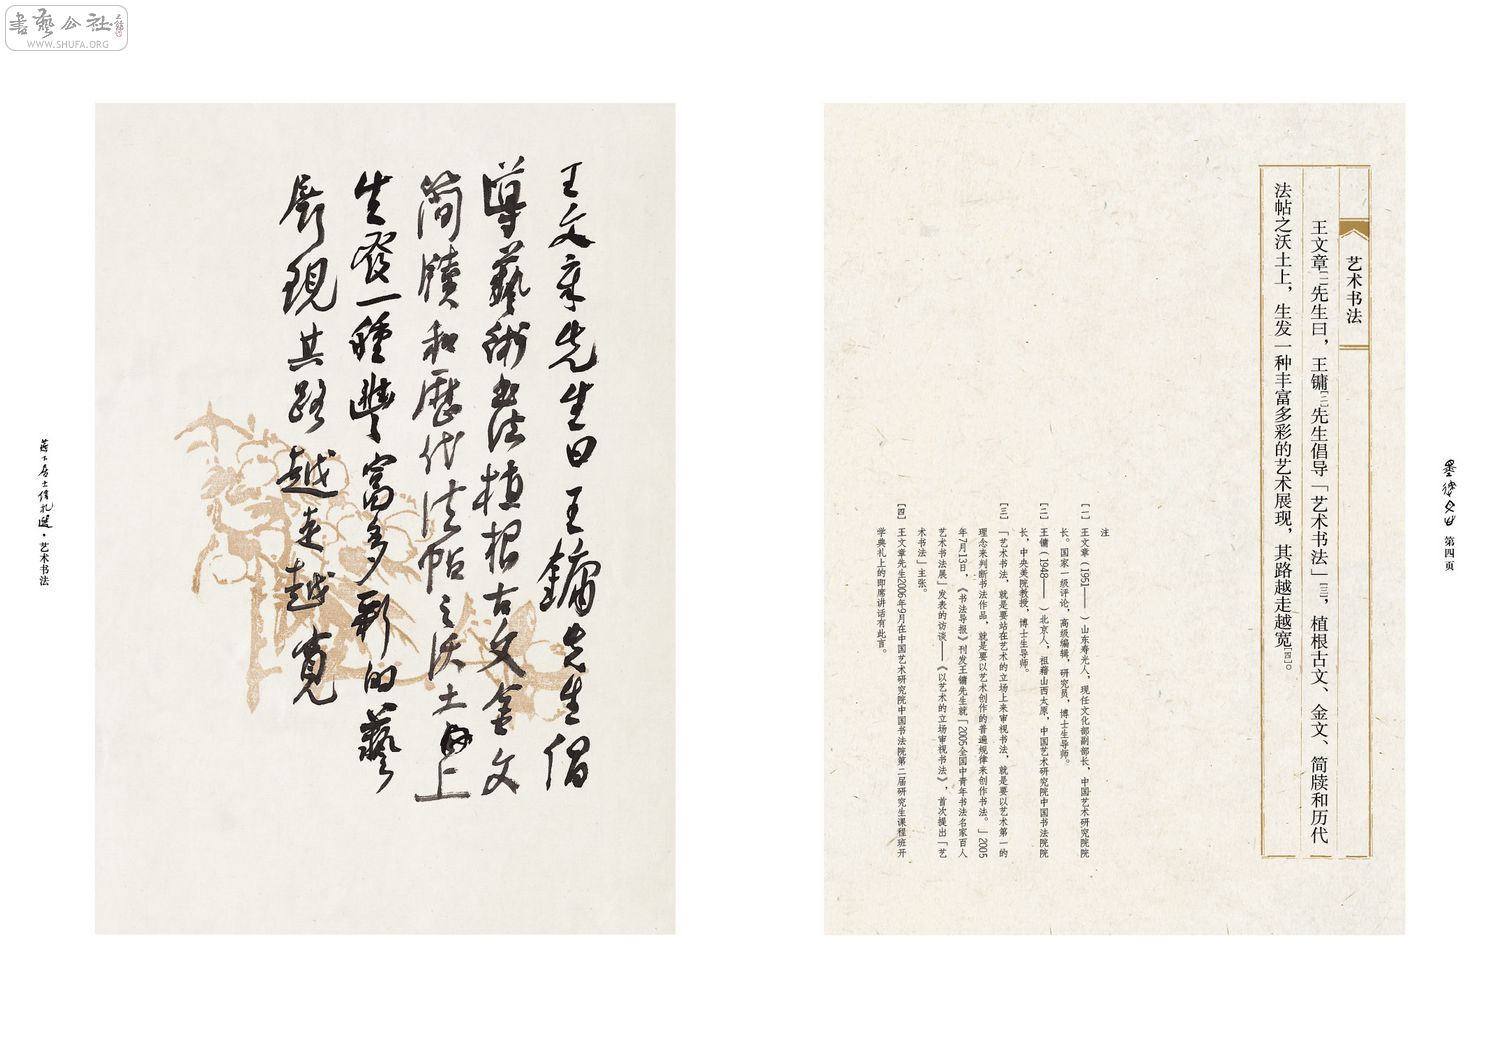 書藝公社
WWW.SHUFA.ORG
第四页
艺术书法
王文章[一]先生曰，王镛[二]先生倡导「艺术书法」[三]，植根古文、金文、简牍和历代
法帖之沃土上，生发一种丰富多彩的艺术展现，其路越走越宽[四]。
注
[一] 王文章（1951—— ）山东寿光人，现任文化部副部长，中国艺术研究院院
长。国家一级评论，高级编辑，研究员，博士生导师。
[二] 王镛（1948—— ）北京人，祖籍山西太原，中国艺术研究院中国书法院院
长，中央美院教授，博士生导师。
[三] 「艺术书法，就是要站在艺术的立场上来审视书法，就是要以艺术第一的
理念来判断书法作品，就是要以艺术创作的普遍规律来创作书法。」2005
年7月13日，《书法导报》刊发王镛先生就「2005全国中青年书法名家百人
艺术书法展」发表的访谈——《以艺术的立场审视书法》，首次提出「艺
术书法」主张。
[四] 王文章先生2006年9月在中国艺术研究院中国书法院第二届研究生课程班开
学典礼上的即席讲话有此言。
王文章先生曰王鏞先生倡
導藝術書法植根古文金文
简牘和歷代法帖之沃土上
生發一種豐富多彩的藝
術展現其路越走越寬
居士信札選·艺术书法